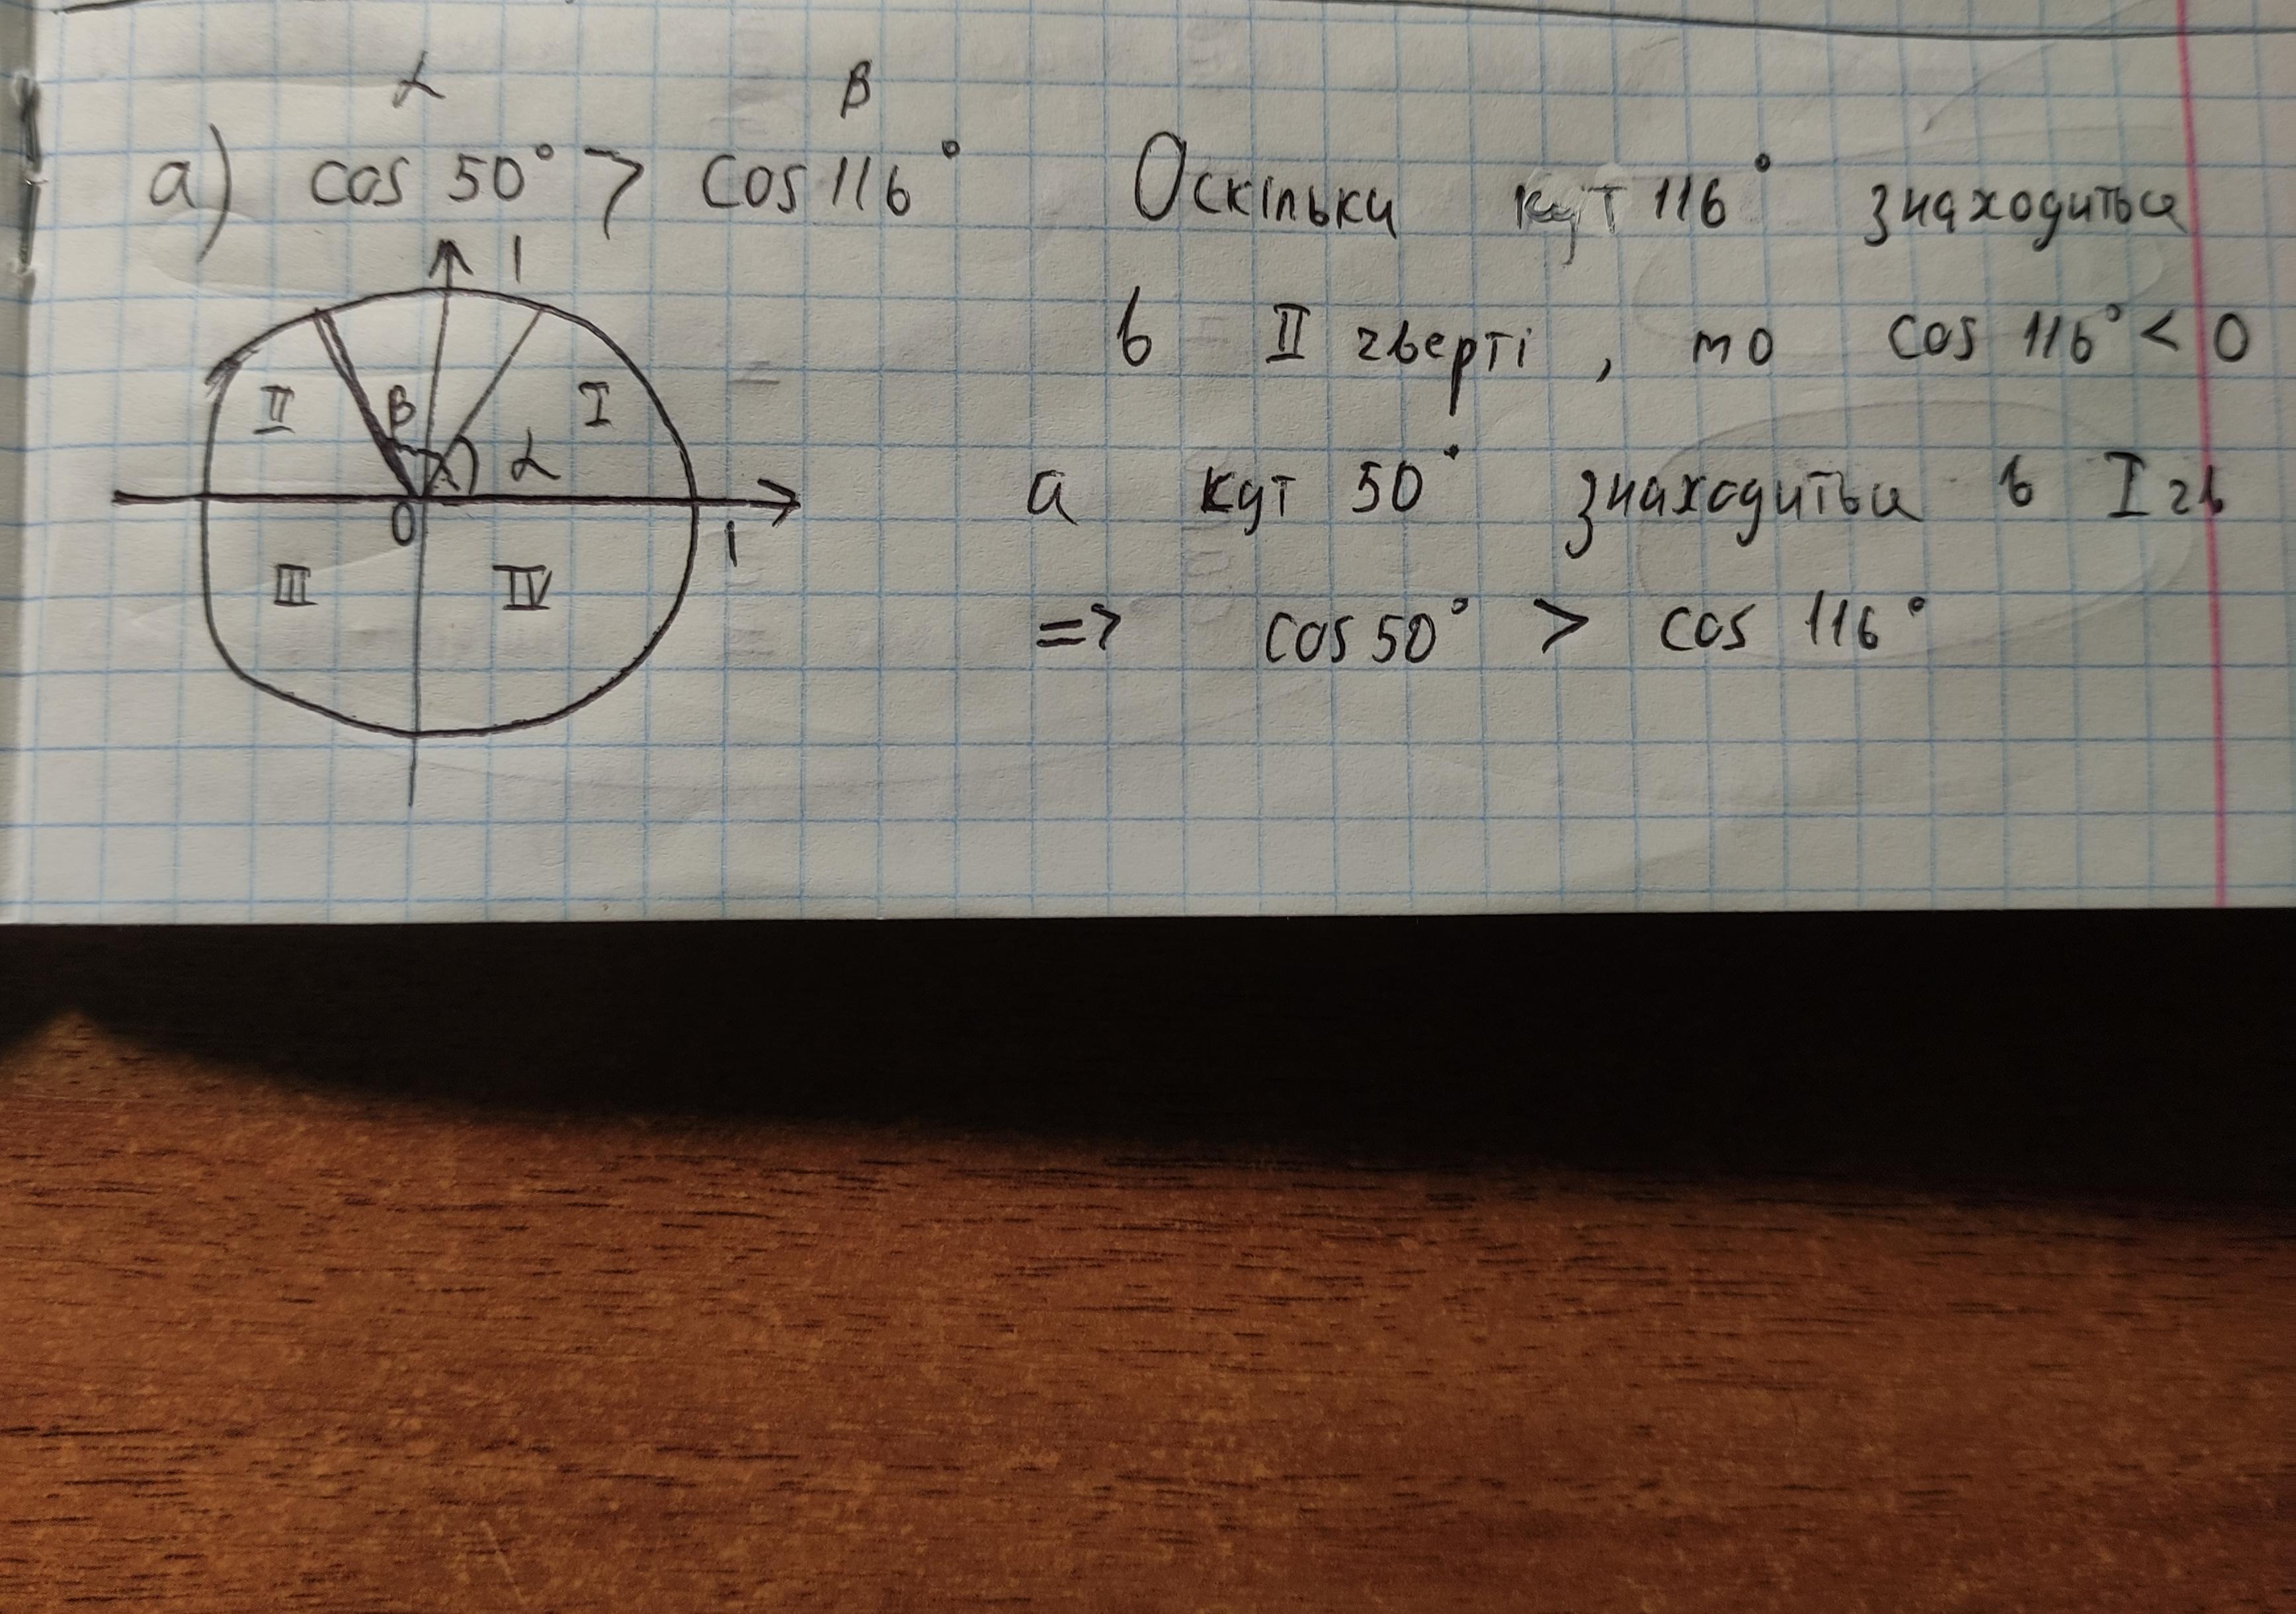 α β
а) cos 50° > cos 116°
1
II β I α
O 1
III IV
Оскільки кут 116° знаходиться
в II чверті, то cos 116° < 0
а кут 50° знаходиться в I чв
=> cos 50° > cos 116°